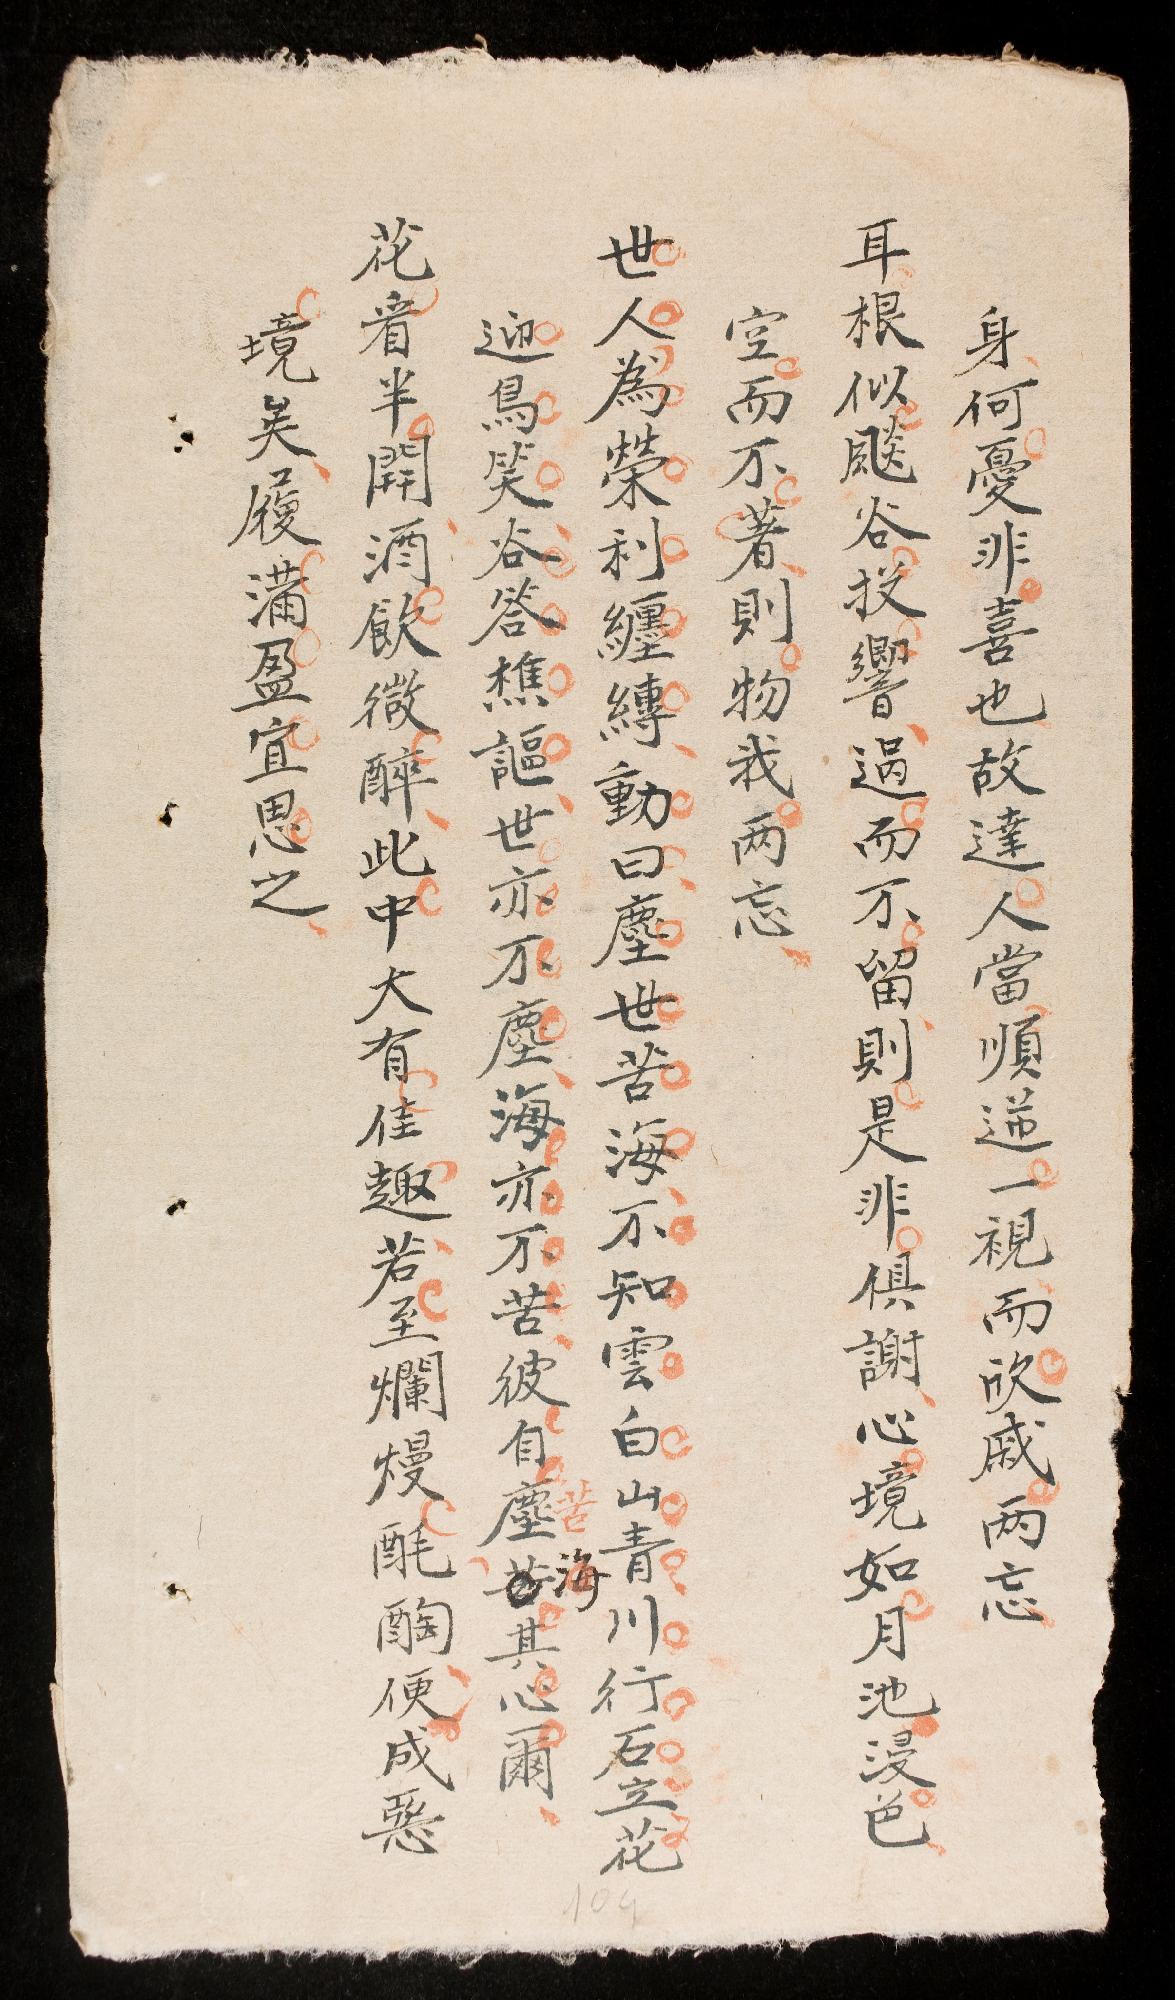 身何憂非喜也故達人當順逆一視而欣戚两忘
耳根似飈谷投響過而不留則是非俱謝心境如月池浸色
空而不著則物我两忘
世人為榮利纏縛動曰塵世苦海不知雲白山青川行石立花
迎鳥笑谷答樵謳世亦不塵海亦不苦彼自塵苦海其心爾
花看半開酒飲微醉此中大有佳趣若至爛熳酕醄便成惡
境矣履滿盈宜思之
104